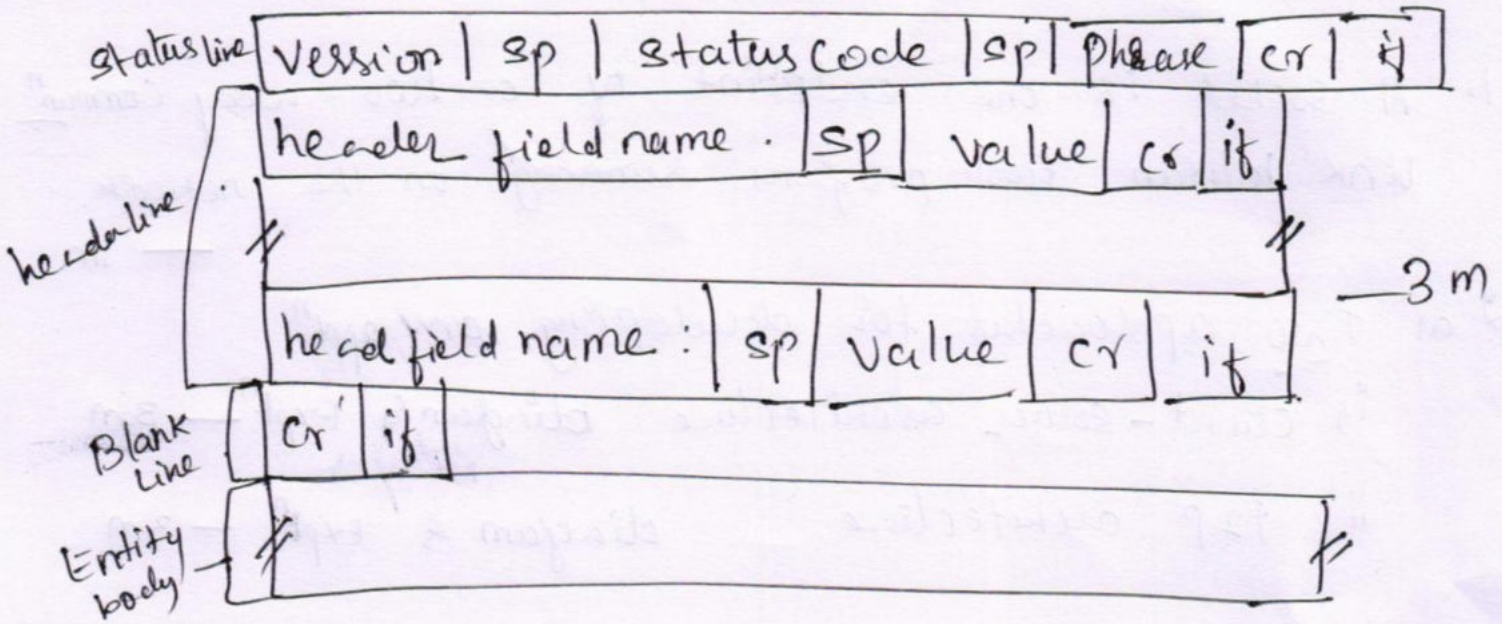 status line Version | sp | status code | sp | phrase | cr | if
header field name . | sp | value | cr | if
header line
— 3 m
head field name . | sp | value | cr | if
Blank Line cr | if
Entity body